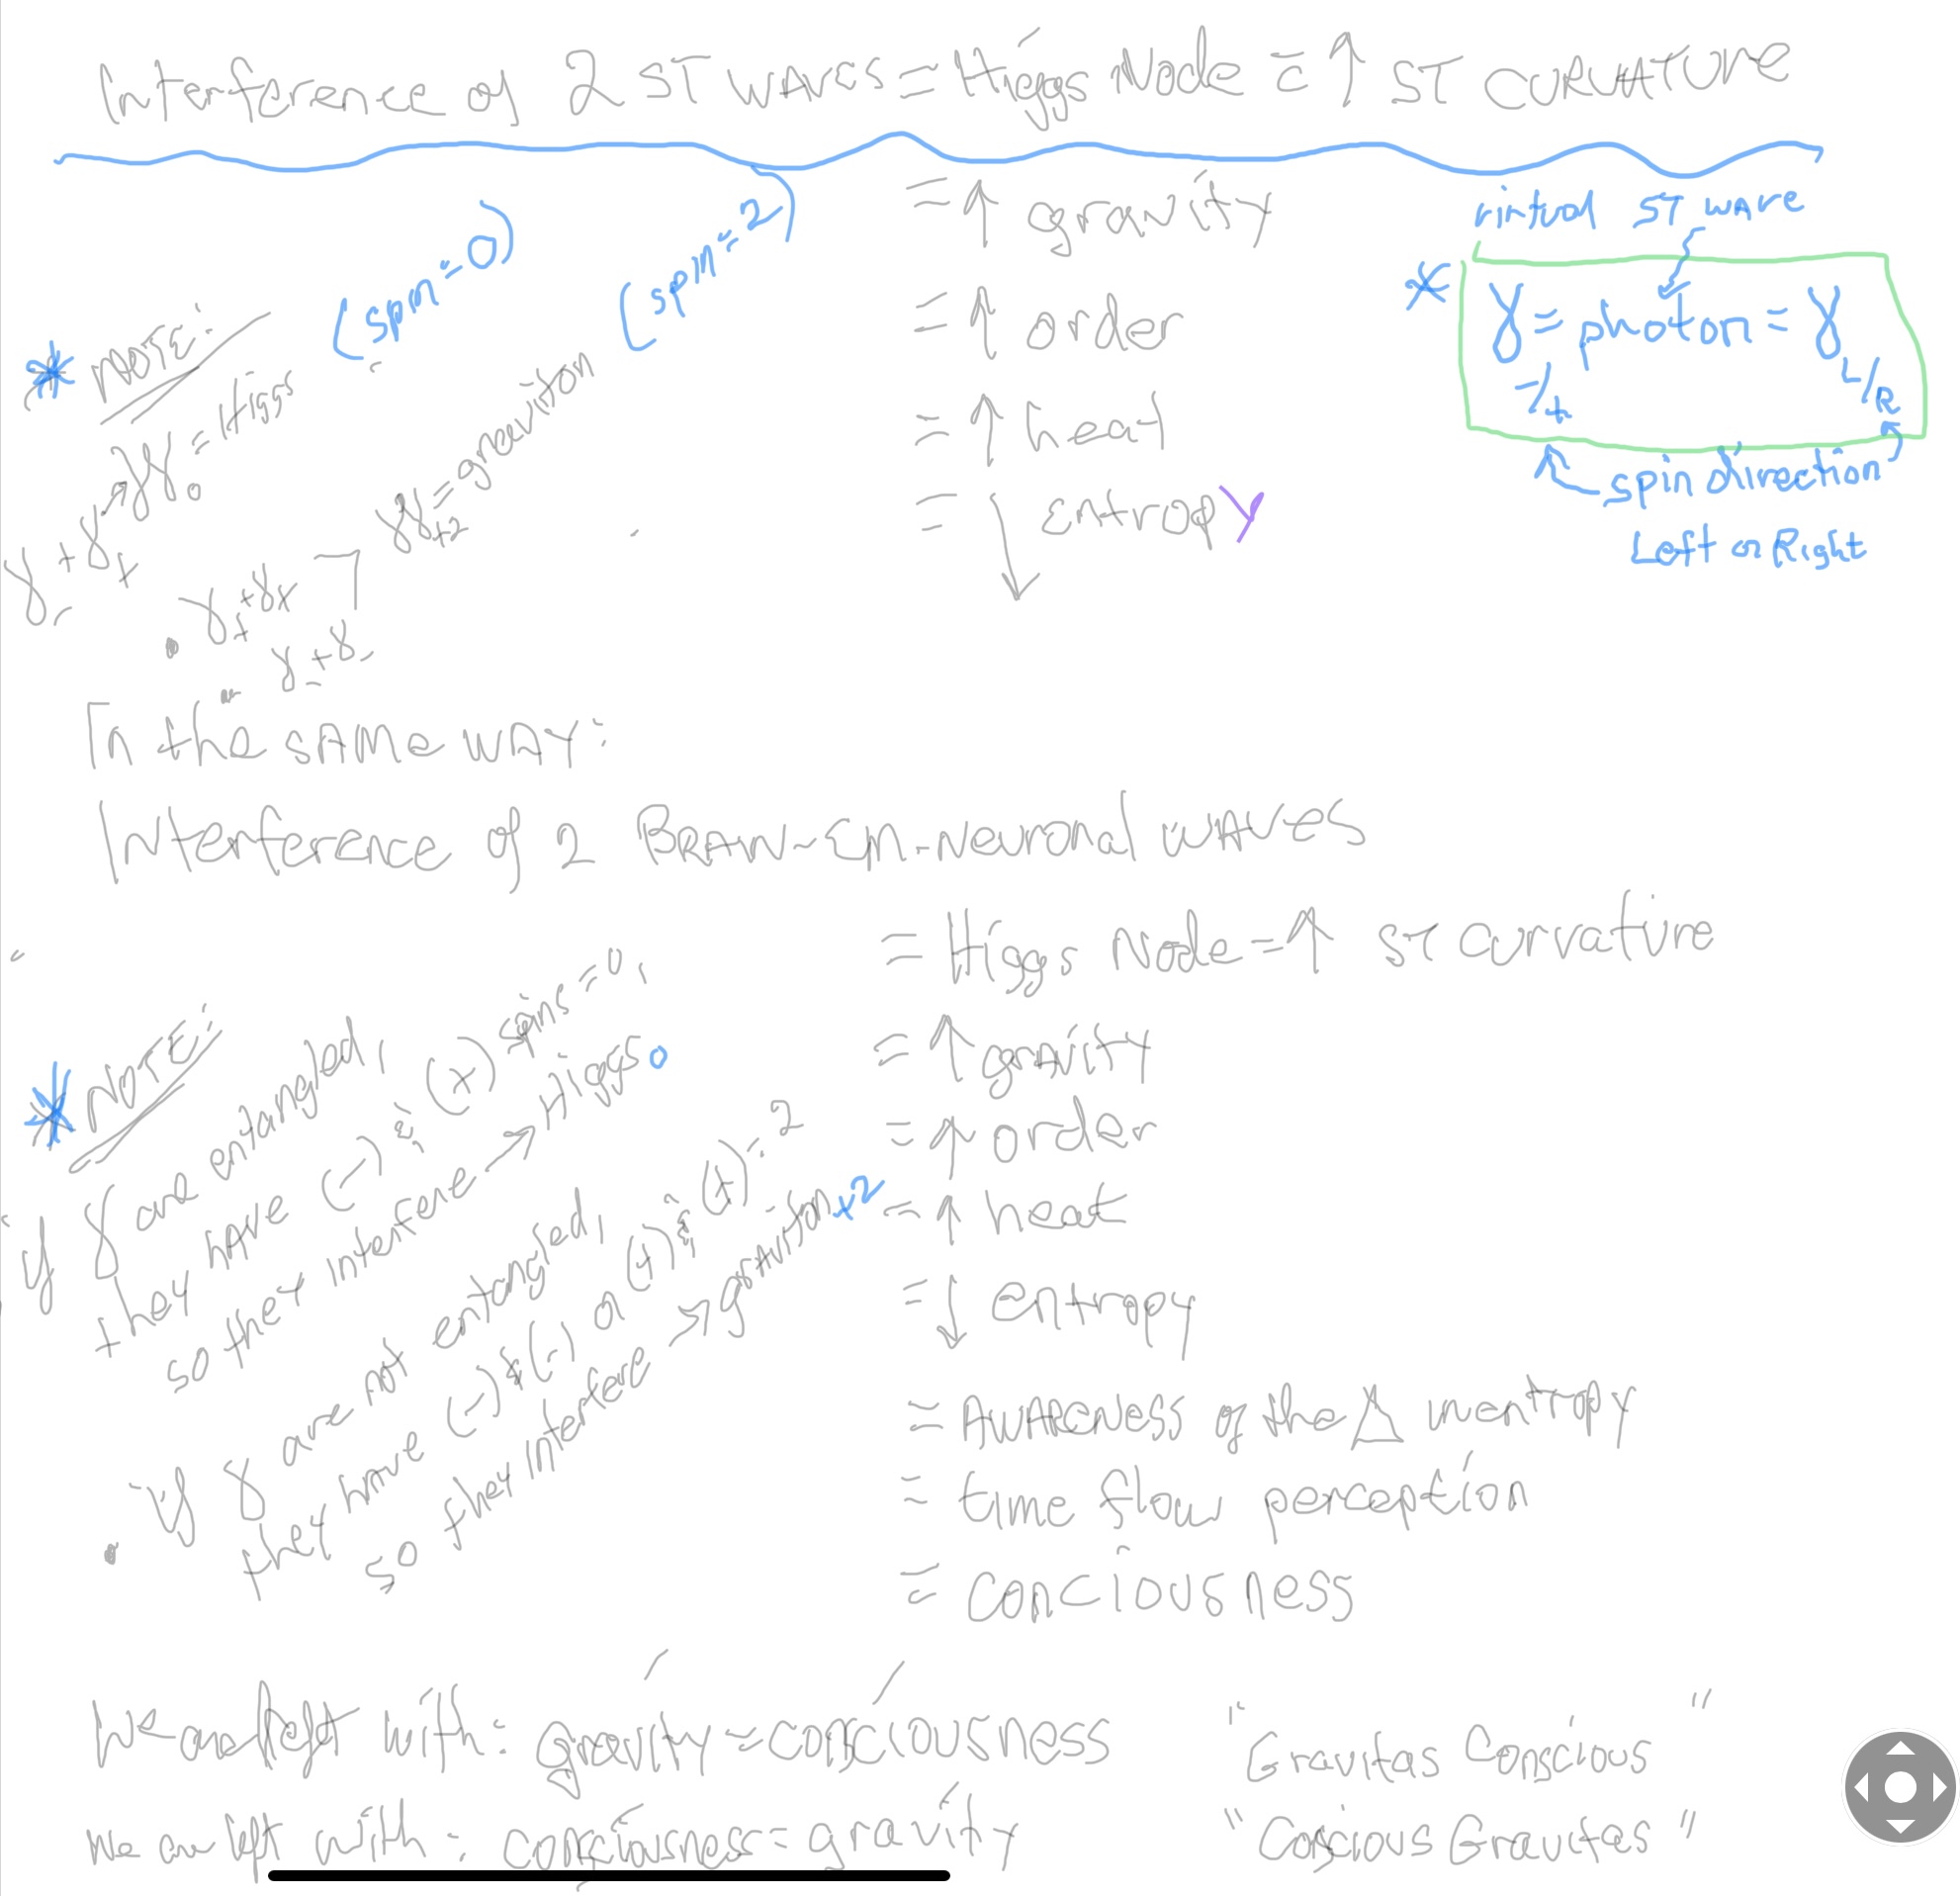 Interference of 2 ST waves = Higgs Node = ↑ ST CURVATURE
= ↑ gravity
= ↑ order
= ↑ heat
= ↓ Entropy
(spin=0)
(spin=2)
virtual ST wave
γ = photon = γ
-/+
L/R
spin direction
Left or Right
Note:
γ- + γ+ → γγ0 = Higgs
γ+ + γ+
γ- + γ-
γγ±2 = graviton
In the same way:
Interference of 2 Brain-EM-neuronal waves
= Higgs Node = ↑ ST curvature
= ↑ gravity
= ↑ order
= ↑ heat
= ↓ entropy
= AWARENESS of the Δ in entropy
= time flow perception
= conciousness
Note:
if γ are entangled,
they have (-) & (+) spins = 0,
so their interference → Higgs0
if γ are not entangled,
they have (-) & (-) or (+) & (+) = 2
so their interference → graviton±2
We are left with: gravity = conciousness
"Gravitas Conscious"
We are left with: consciousness = gravity
"Consious Gravitas"